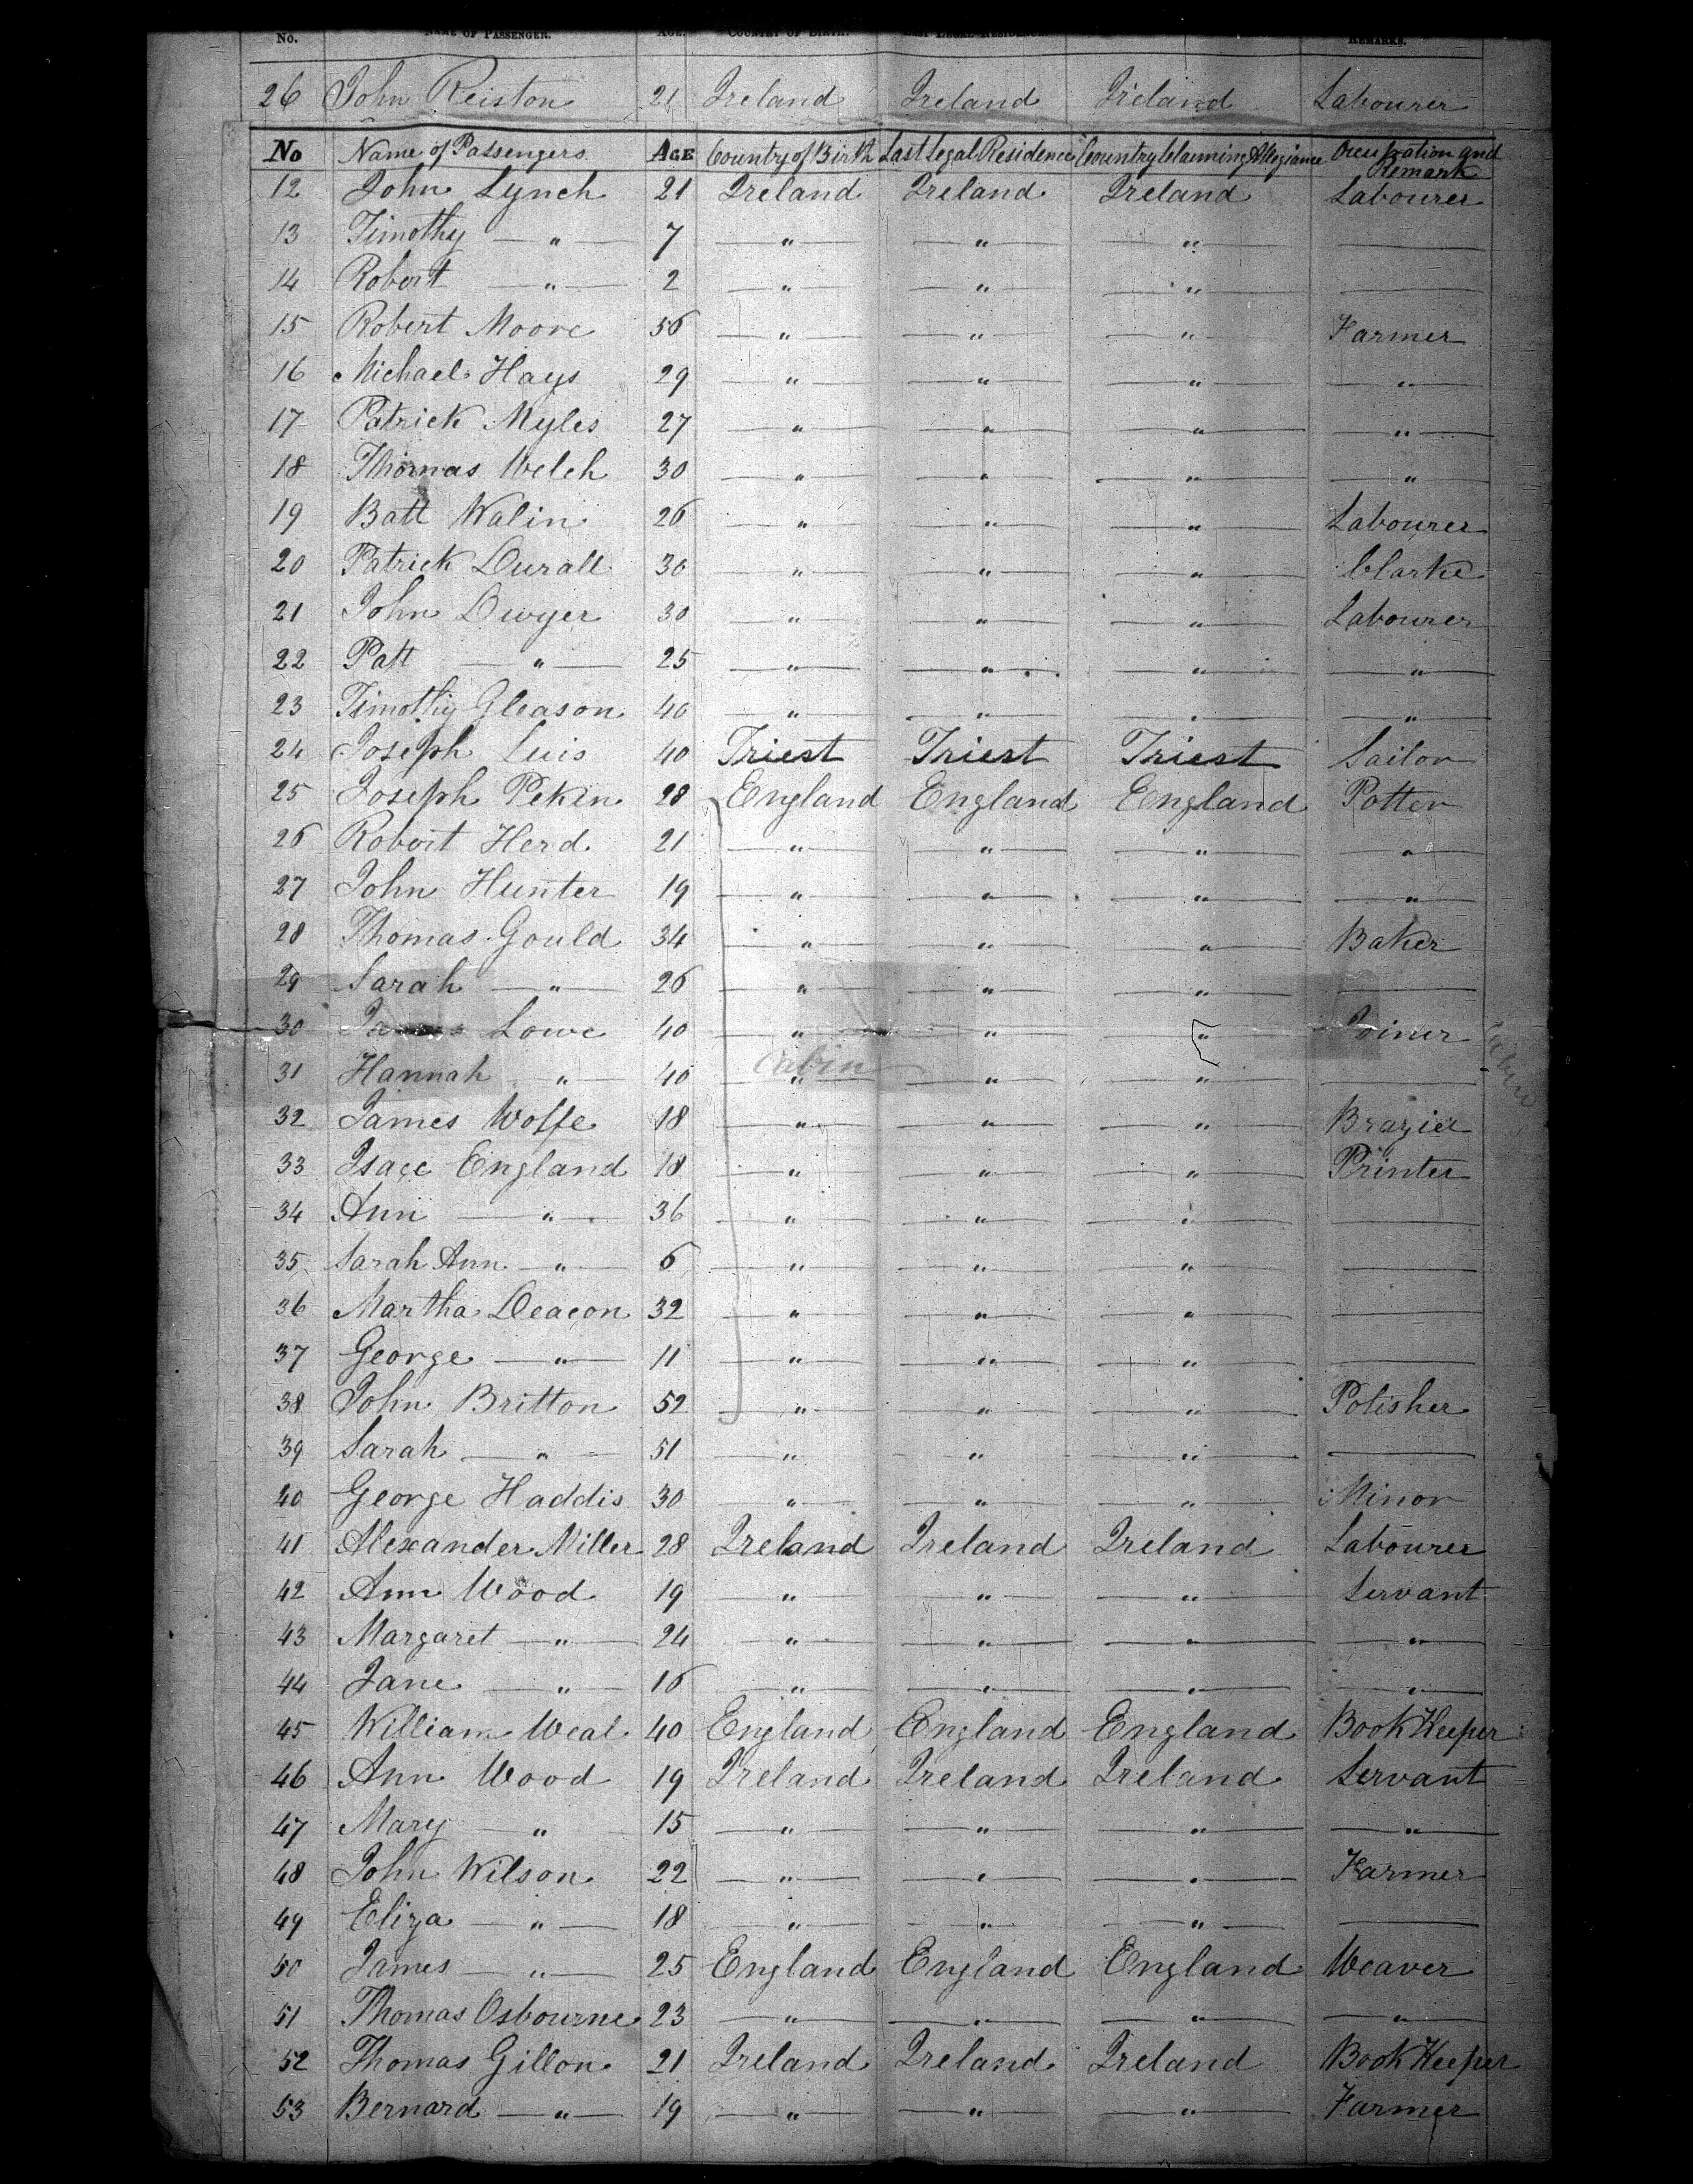 No. NAME OF PASSENGER. AGE. COUNTRY OF BIRTH. LAST LEGAL RESIDENCE. REMARKS.
26 John Reiston 21 Ireland Ireland Ireland Labourer
No Name of Passengers AGE Country of Birth Last Legal Residence Country Claiming Allegiance Occupation and
Remark
12 John Lynch 21 Ireland Ireland Ireland Labourer
13 Timothy — " — 7 — " — — " — — " — ———
14 Robert — " — 2 — " — — " — — " — ———
15 Robert Moore 56 — " — — " — — " — Farmer
16 Michael Hays 29 — " — — " — — " — — " —
17 Patrick Myles 27 — " — — " — — " — — " —
18 Thomas Welch 30 — " — — " — — " — — " —
19 Batt Walin 26 — " — — " — — " — Labourer
20 Patrick Durall 30 — " — — " — — " — Clarke
21 John Dwyer 30 — " — — " — — " — Labourer
22 Patt — " — 25 — " — — " — — " — — " —
23 Timothy Gleason 40 — " — — " — — " — — " —
24 Joseph Luis 40 Triest Triest Triest Sailor
25 Joseph Pekin 28 England England England Potter
26 Robert Herd 21 — " — — " — — " — — " —
27 John Hunter 19 — " — — " — — " — — " —
28 Thomas Gould 34 — " — — " — — " — Baker
29 Sarah — " — 26 — " — — " — — " — ———
30 Lowe 40 — " — — " — — " — Joiner
Cabin
31 Hannah — " — 40 — " — — " — — " — ———
32 James Wolfe 18 — " — — " — — " — Brazier
33 Isacc England 18 — " — — " — — " — Printer
34 Ann — " — 36 — " — — " — — " — ———
35 Sarah Ann — " — 6 — " — — " — — " — ———
36 Martha Deacon 32 — " — — " — — " — ———
37 George — " — 11 — " — — " — — " — ———
38 John Britton 52 — " — — " — — " — Polisher
39 Sarah — " — 51 — " — — " — — " — ———
40 George Haddis 30 — " — — " — — " — Minor
41 Alexander Miller 28 Ireland Ireland Ireland Labourer
42 Ann Wood 19 — " — — " — — " — Servant
43 Margaret — " — 24 — " — — " — — " — — " —
44 Jane — " — 16 — " — — " — — " — — " —
45 William Weal 40 England England England Book Keeper
46 Ann Wood 19 Ireland Ireland Ireland Servant
47 Mary — " — 15 — " — — " — — " — — " —
48 John Wilson 22 — " — — " — — " — Farmer
49 Eliza — " — 18 — " — — " — — " — ———
50 James — " — 25 England England England Weaver
51 Thomas Osbourne 23 — " — — " — — " — — " —
52 Thomas Gillon 21 Ireland Ireland Ireland Book Keeper
53 Bernard — " — 19 — " — — " — — " — Farmer